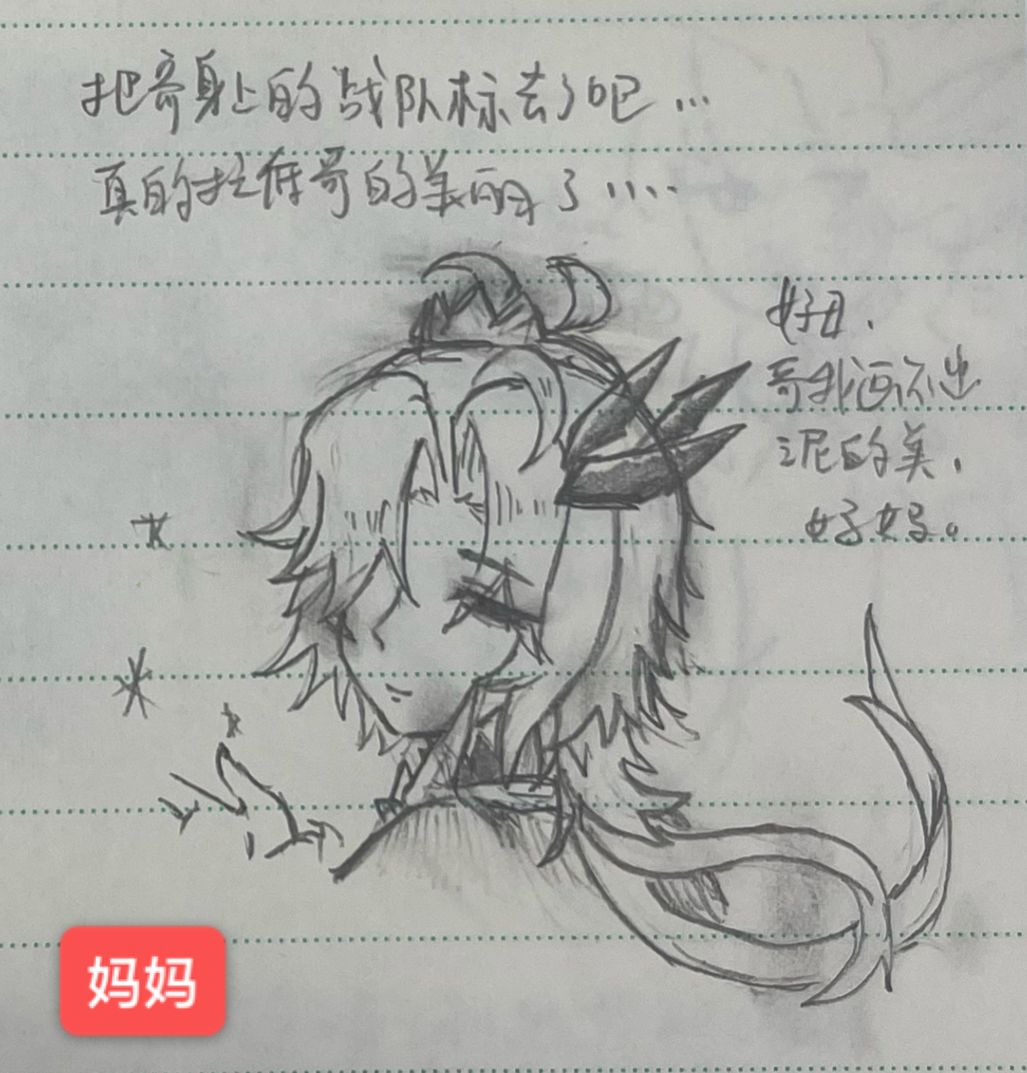 把哥身上的战队标去了吧...
真的拉低哥的美丽了....
好母.
哥我画不出
泥的美.
好好。
妈妈